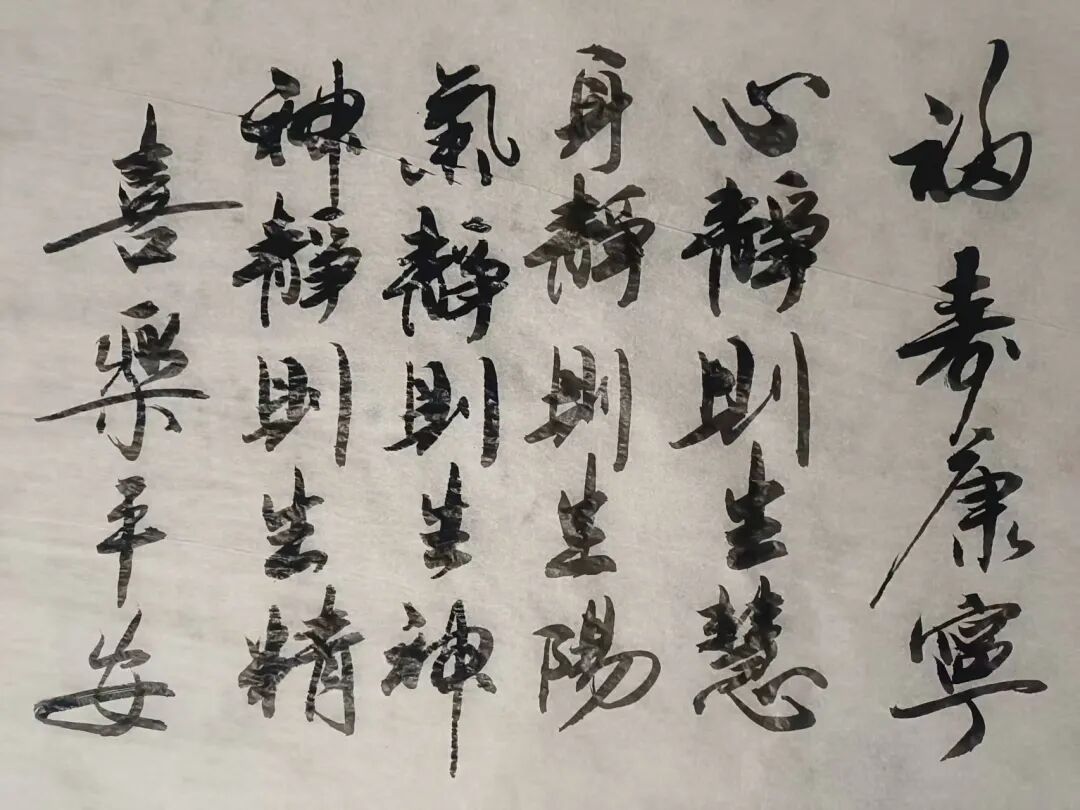 福壽康寧
心靜則生慧
身靜則生陽
氣靜則生神
神靜則生精
喜樂平安